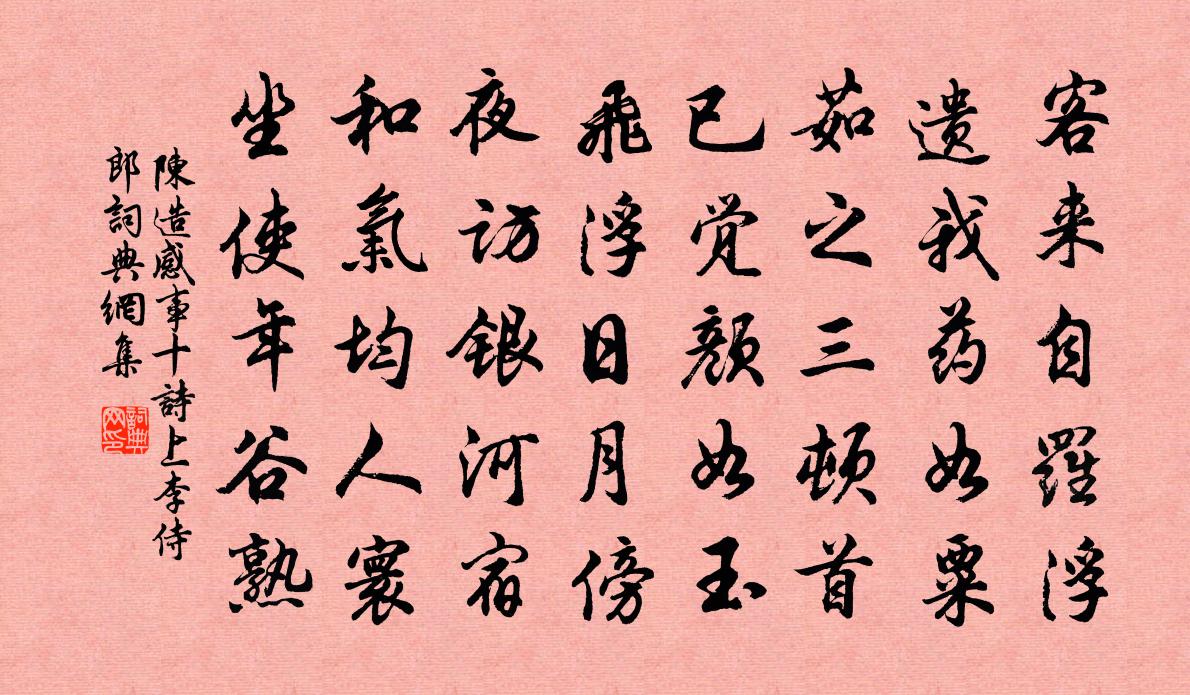 客来自羅浮
遗我药如粟
茹之三顿首
已觉颜如玉
飛浮日月傍
夜访银河宿
和氣均人寰
坐使年谷熟
陳造感事十詩上李侍
郎詞典網集
詞典网印